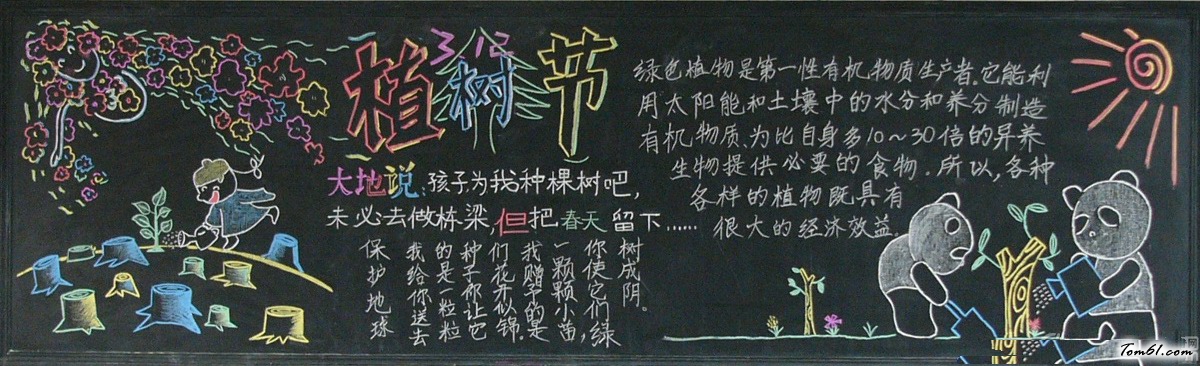 3.12
植树节
大地说:孩子为我种棵树吧,
未必去做栋梁,但把春天留下……
保护地球
我给你送去
的是一粒粒
种子你让它
们花开似锦.
我赠予的是
一颗颗小苗,
你使它们绿
树成阴。
绿色植物是第一性有机物质生产者.它能利
用太阳能和土壤中的水分和养分制造
有机物质、为比自身多10~30倍的异养
生物提供必要的食物.所以,各种
各样的植物既具有
很大的经济效益.
Tom61.com